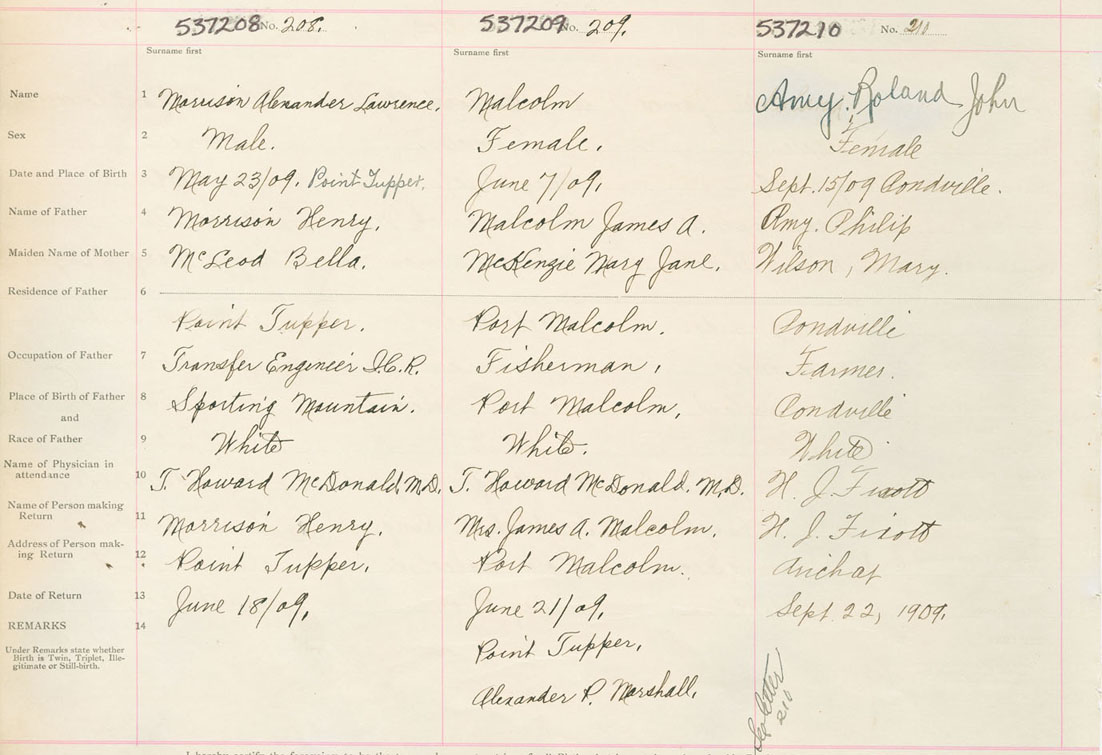 537208 No. 208.
537209 No. 209.
537210 No. 211
Surname first
Surname first
Surname first
Name 1 Morrison Alexander Lawrence. Malcolm Amy. Roland John
Sex 2 Male. Female. Female
Date and Place of Birth 3 May 23/09. Point Tupper. June 7/09. Sept. 15/09 Pondville.
Name of Father 4 Morrison Henry. Malcolm James A. Amy. Philip
Maiden Name of Mother 5 McLeod Bella. McKenzie Mary Jane. Wilson, Mary.
Residence of Father 6
Point Tupper. Port Malcolm. Pondville
Occupation of Father 7 Transfer Engineer I.C.R. Fisherman. Farmer.
Place of Birth of Father 8 Sporting Mountain. Port Malcolm. Pondville
and
Race of Father 9 White White. White
Name of Physician in
attendance 10 T. Howard McDonald, M.D. T. Howard McDonald. M.D. H. J. Fixott
Name of Person making
Return 11 Morrison Henry. Mrs. James A. Malcolm. H. J. Fixott
Address of Person mak-
ing Return 12 Point Tupper. Port Malcolm. Arichat
Date of Return 13 June 18/09. June 21/09. Sept. 22, 1909.
REMARKS 14
Under Remarks state whether
Birth is Twin, Triplet, Ille-
gitimate or Still-birth.
Point Tupper.
Alexander P. Marshall.
See letter
210